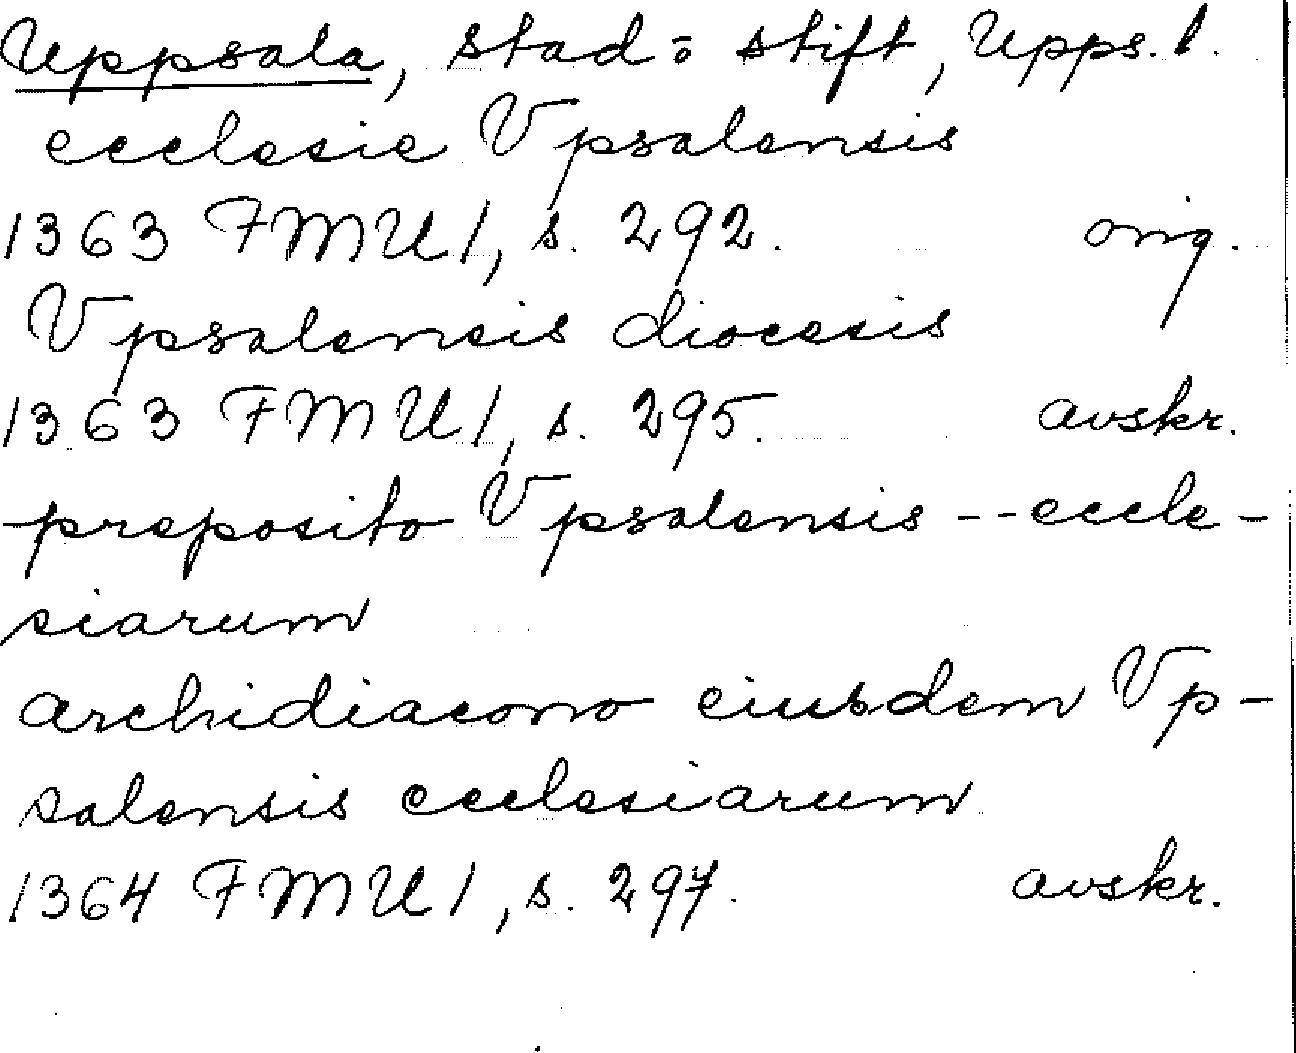 Uppsala, stad o stift, Upps. l.
ecclesie Vpsalensis
1363 FMU 1, s. 292. orig.
Vpsalensis diocesis
1363 FMU 1, s. 295. avskr.
preposito Vpsalensis -- eccle-
siarum
archidiacono eiusdem Vp-
salensis ecclesiarum
1364 FMU 1, s. 297. avskr.